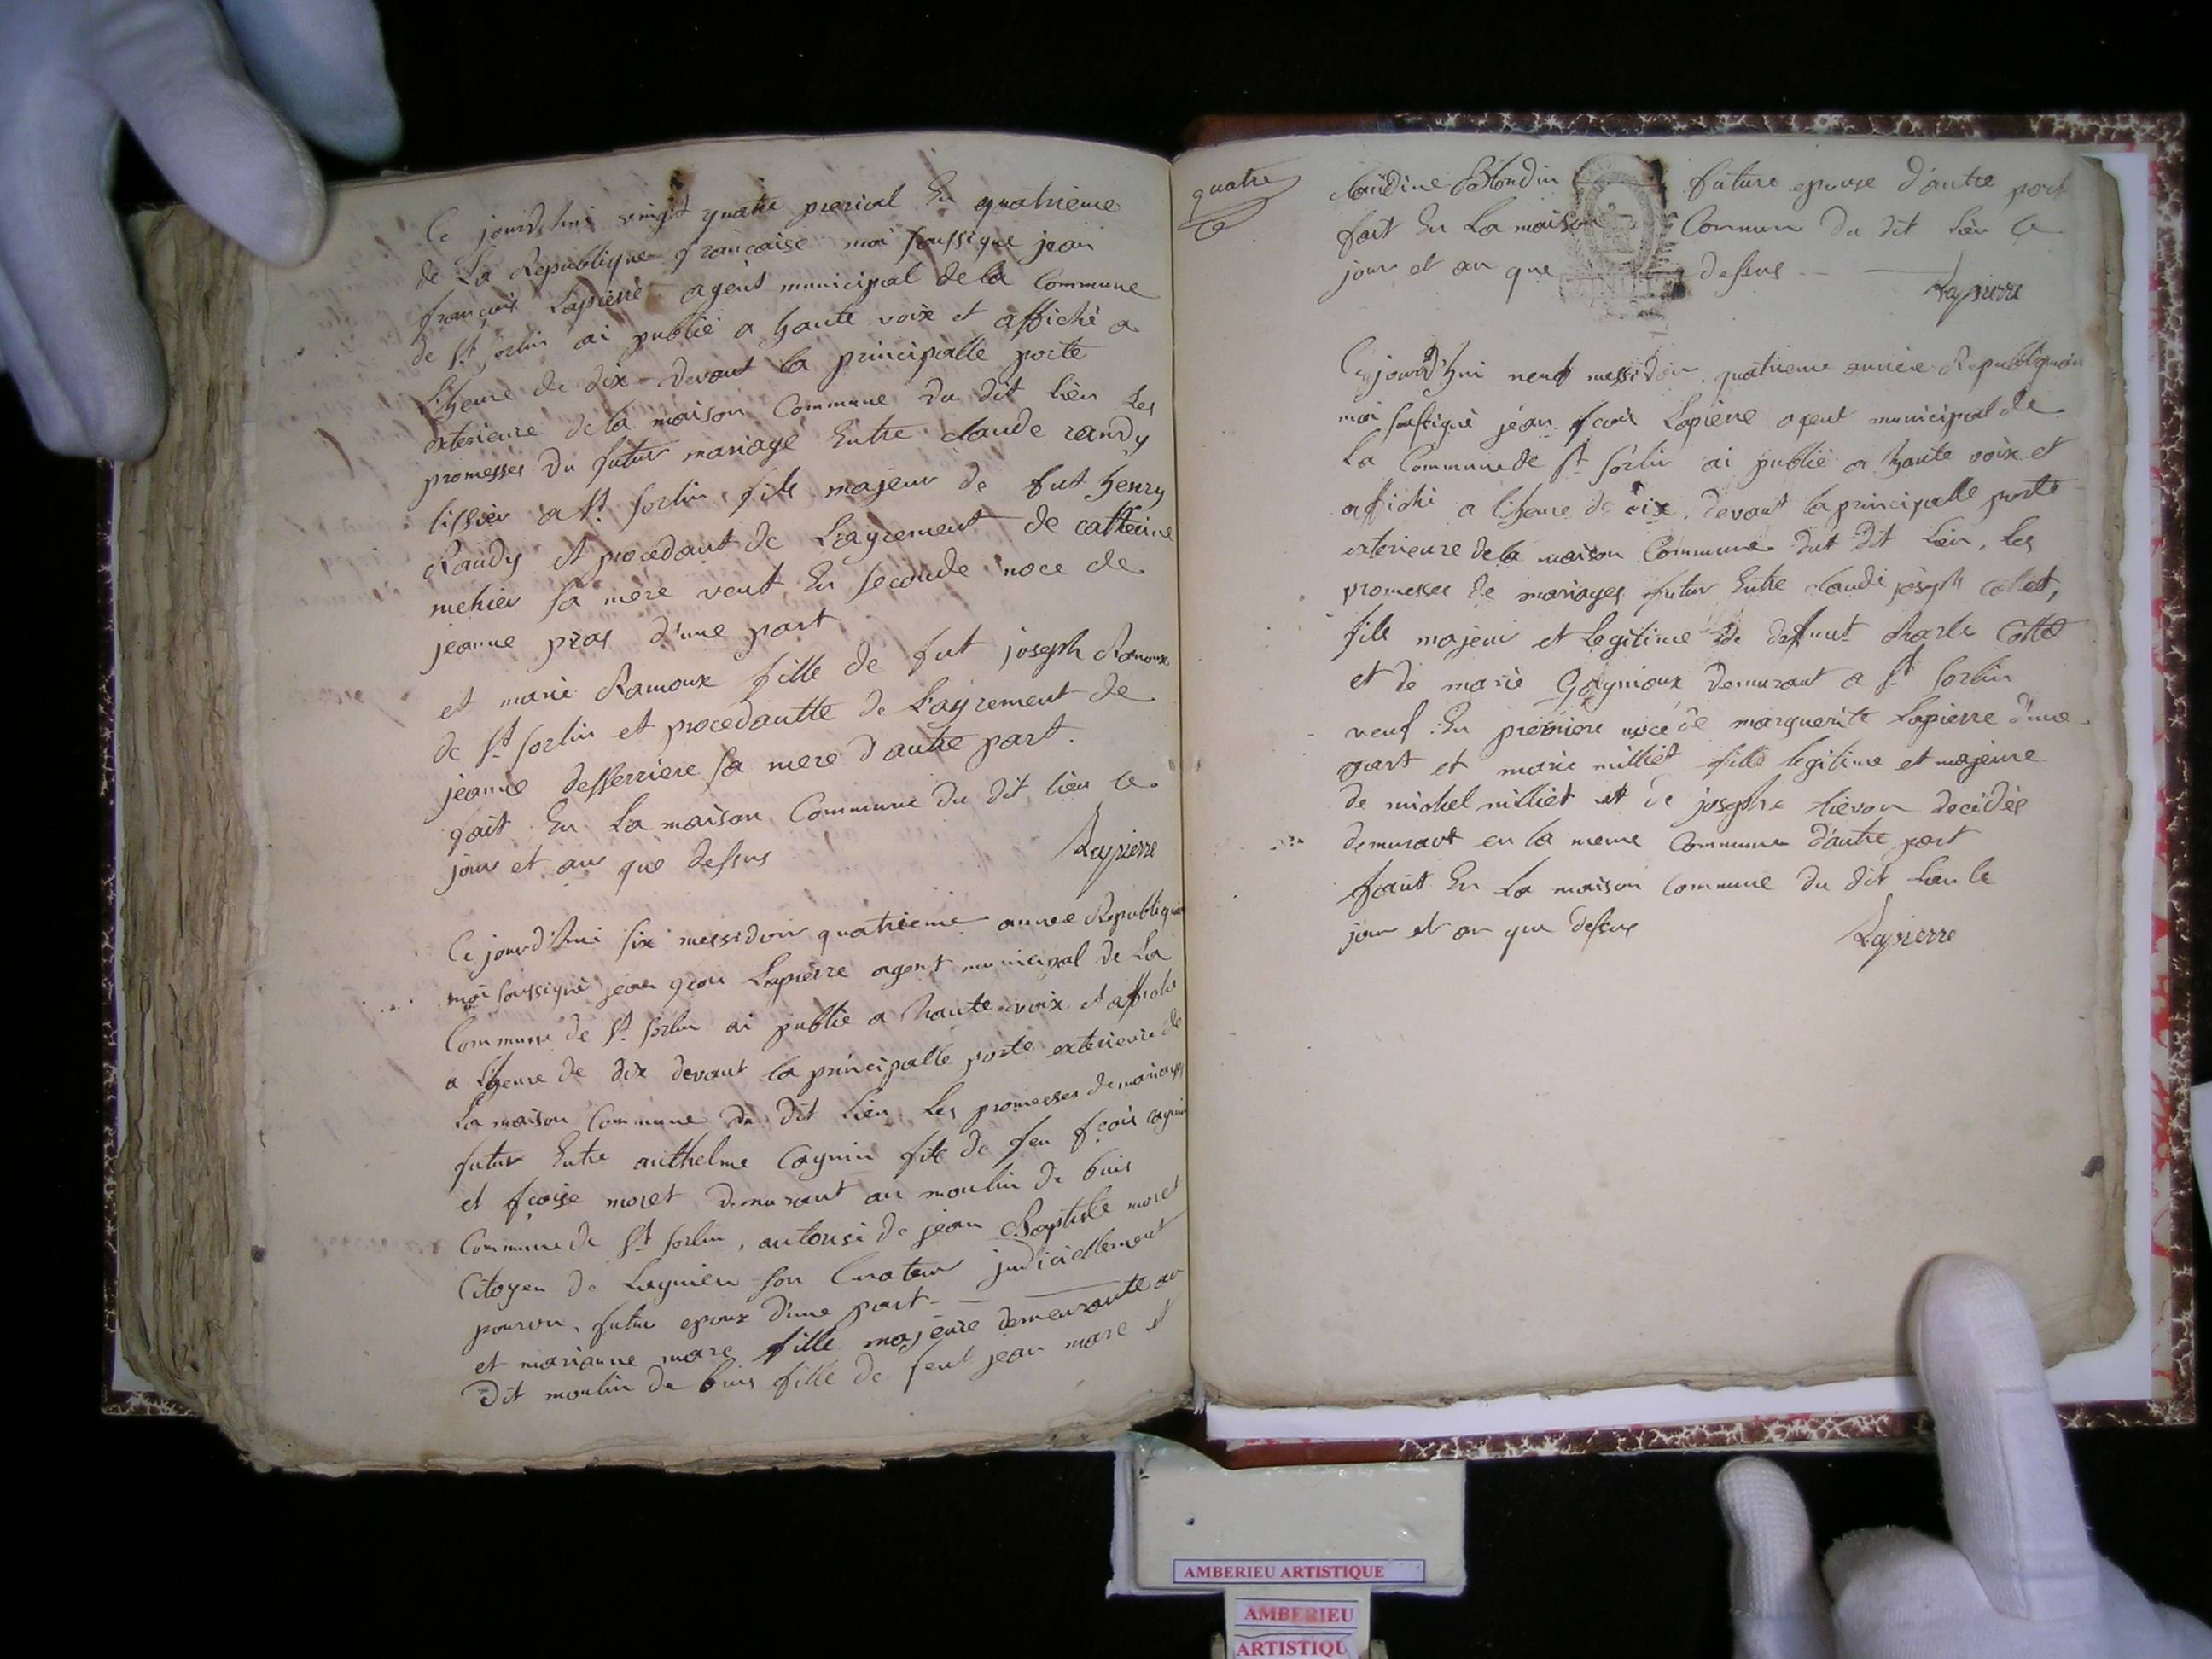 Ce jourd'hui vingt quatre prerial En quatrieme
de La Republique francaise moi soussigné jean
françois Lapierre agent municipal de la Commune
de St sorlin ai publié a haute voix et affiché a
L'heure de dix devant la principalle porte
exterieure de la maison Commune du dit lieu Les
promesses du futur mariage Entre claude randy
tissier a St sorlin, fils majeur de fut henry
Randy et procedant de L'agrement de catterine
mehier sa mere veuf En seconde noce de
jeanne pras d'une part
et marie Ramoux fille de fut joseph Ramoux
de St sorlin et procedantte de L'agrement de
jeanne desserriere sa mere d'autre part.
fait En La maison Commune du dit lieu le
jour et an que dessus
Lapierre
Ce jourd'hui six messidor quatrieme année Republique
moi soussigné jean fçois Lapierre agent municipal de La
Commune de St sorlin ai publié a haute voix et affiché
a L'heure de dix devant la principalle porte exterieure de
La maison Commune du dit Lieu Les promesses de mariages
futur Entre anthelme Cagnin fils de feu fçois cagnin
et fçoise moret demurant au moulin de buis
Commune de St sorlin, autorisé de jean Baptiste moret
Citoyen de Lagnieu son Curateur judiciellement
pourvu, futur epoux d'une part
et marianne marc fille majeure demeurante au
Dit moulin de buis fille de feut jean marc et
quatre
Claudine Blondin future epouse d'autre part
fait En La maison Commun du dit Lieu le
jour et an que dessus
Lapierre
Ce jourd'hui neuf messidor quatrieme année Republiquain
moi soussigné jéan fcois Lapierre agent municipal de
La Commune de St sorlin ai publié a haute voix et
affiché a l'heure de dix devant la principalle porte
exterieure de la maison Commune dut dit Lieu, les
promesses de mariages futur Entre claude joseph collet,
fils majeur et Legitime de defunt charle Collet
et de marie Gagnioux demurant a St sorlin
veuf En premiere noce de marguerite Lapierre d'une
part et marie milliet fille legitime et majeure
de michel milliet et de josephe lievon decédée
demurant en la meme Commune d'autre part
faait En La maison Commune du dit Lieu le
jour et an que dessus
Lapierre
AMBERIEU ARTISTIQUE
AMBERIEU
ARTISTIQU